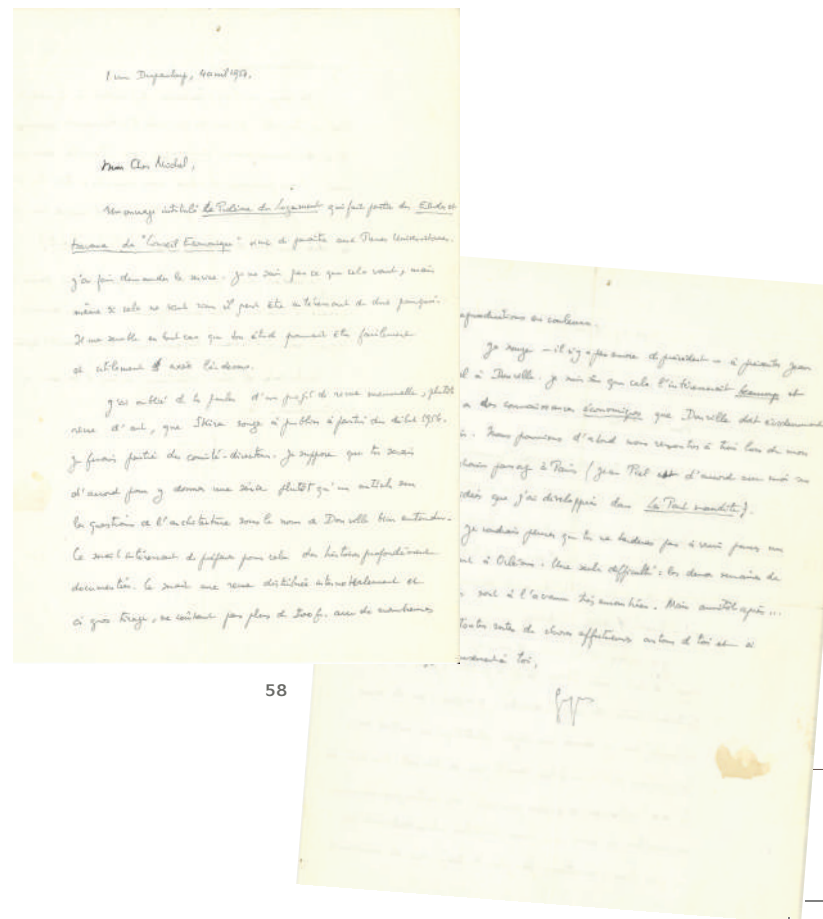 1 rue Dupanloup, 4 avril 1954.
Mon Cher Michel,
Un ouvrage intitulé Le Problème du Logement qui fait partie des Etudes et
travaux du "Conseil Economique" vient de paraître aux Presses Universitaires.
J'en fais demander le service. Je ne sais pas ce que cela vaut, mais
même si cela ne vaut rien il peut être intéressant de dire pourquoi.
Il me semble en tout cas que ton étude pourrait être facilement
et utilement axée là-dessus.
J'ai oublié de te parler d'un projet de revue mensuelle, plutôt
revue d'art, que Skira songe à publier à partir du début
Je ferais partie du comité-directeur. Je suppose que tu serais
d'accord pour y donner une série plutôt qu'un article sur
la question de l'architecture sous le nom de Dosville bien entendu.
Ce serait intéressant de préparer pour cela des histoires profondément
documentées. Ce serait une revue distribuée internationalement et
à gros tirage, ne coûtant pas plus de fr. avec de nombreuses
58
reproductions en couleurs.
Je songe — il n'y a pas encore de précédent — à présenter Jean
à Dosville. Je suis sûr que cela l'intéresserait beaucoup et
a des connaissances économiques que Dosville doit
Nous pourrions d'abord nous rencontrer à trois lors de mon
prochain passage à Paris (Jean Piel est d'accord avec moi sur
idées que j'ai développées dans La Part maudite).
Je voudrais penser que tu ne tarderas pas à venir passer un
à Orléans. Une seule difficulté : les deux semaines de
sont à l'avance très encombrées. Mais aussitôt après...
toutes sortes de choses affectueuses autour de toi et
à toi,
Georges